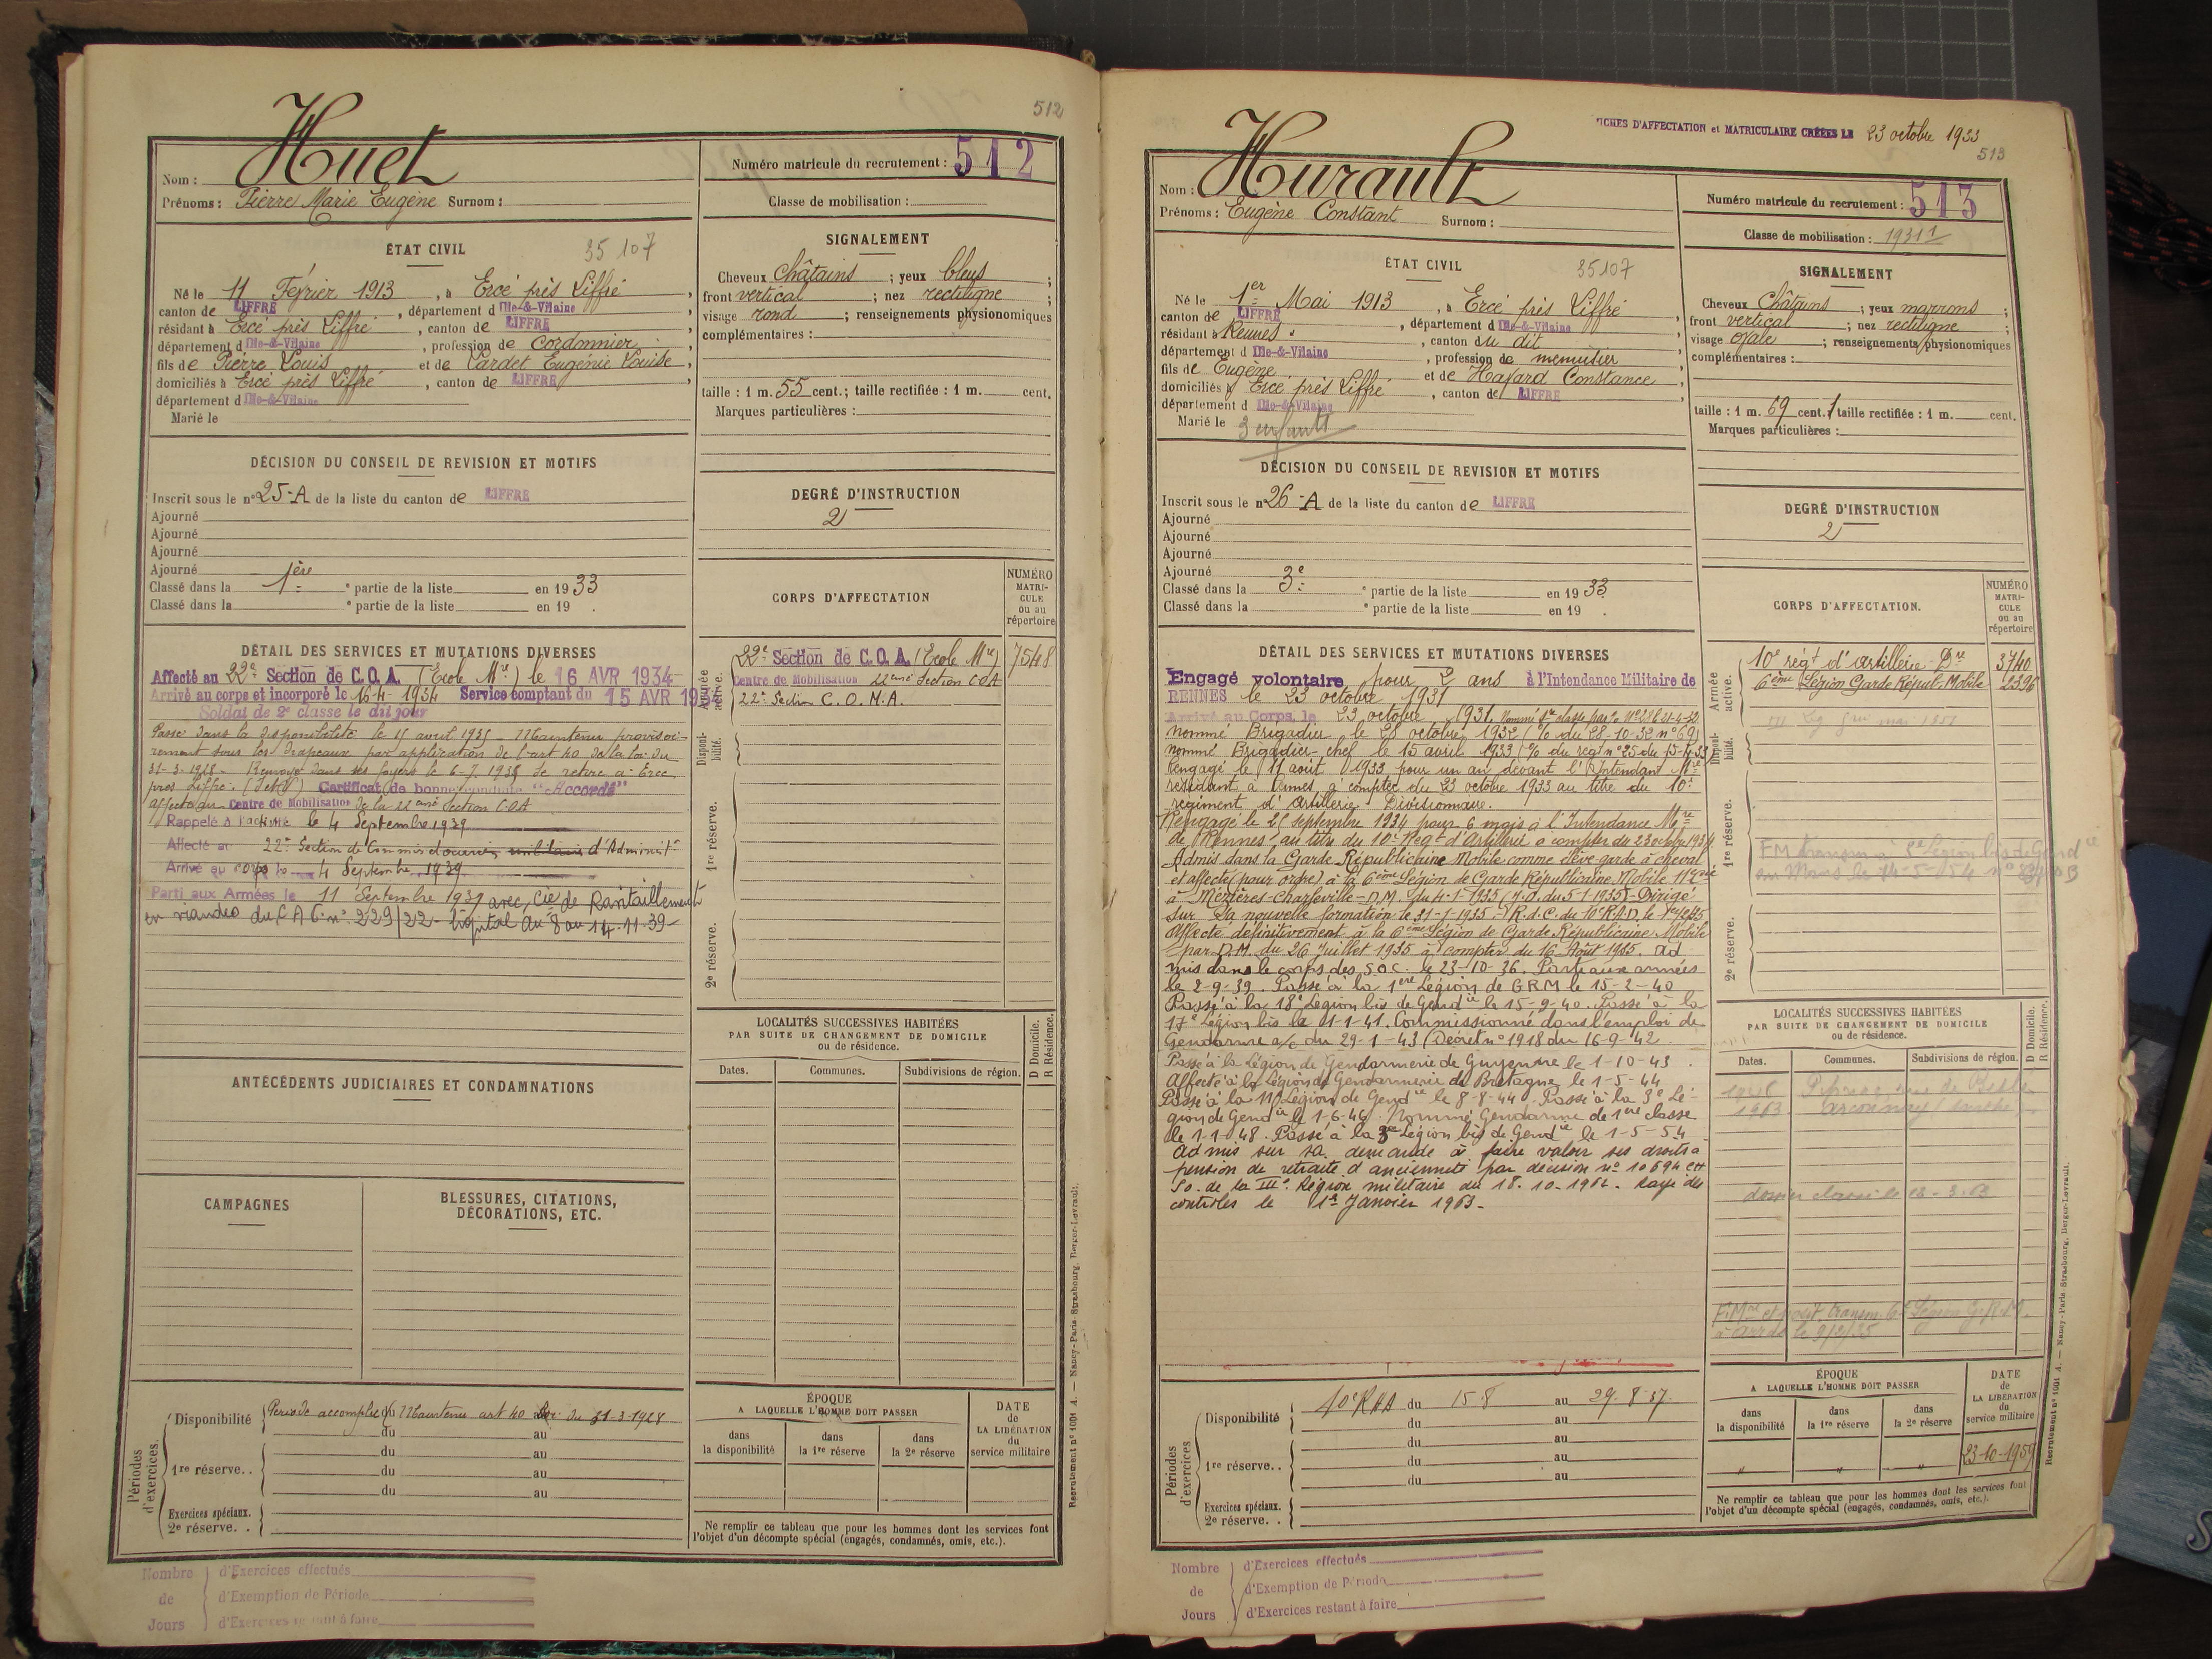 512
Nom : Huet
Prénoms : Pierre Marie Eugène Surnom :
Numéro matricule du recrutement : 512
Classe de mobilisation :
ÉTAT CIVIL
35107
Né le 11 Février 1913, à Ercé près Liffré,
canton de LIFFRÉ, département d'Ille-&-Vilaine,
résidant à Ercé près Liffré, canton de LIFFRÉ,
département d'Ille-&-Vilaine, profession de cordonnier,
fils de Pierre Louis et de Lardet Eugénie Louise,
domiciliés à Ercé près Liffré, canton de LIFFRÉ,
département d Ille-&-Vilaine
Marié le
SIGNALEMENT
Cheveux châtains ; yeux bleus ;
front vertical ; nez rectiligne ;
visage rond ; renseignements physionomiques
complémentaires :
taille : 1 m. 55 cent.; taille rectifiée : 1 m. cent.
Marques particulières :
DÉCISION DU CONSEIL DE REVISION ET MOTIFS
Inscrit sous le n° 25-A de la liste du canton de LIFFRÉ
Ajourné
Ajourné
Ajourné
Ajourné
Classé dans la 1ère e partie de la liste en 1933
Classé dans la e partie de la liste en 19 .
DEGRÉ D'INSTRUCTION
2
CORPS D'AFFECTATION
NUMÉRO MATRI-CULE ou au répertoire
Armée active.
22e Section de C.O.A. (Ecole Mre) 7548
Centre de Mobilisation 22ème Section COA
22e Section C.O.M.A.
Disponi-bilité.
1re réserve.
2e réserve.
DÉTAIL DES SERVICES ET MUTATIONS DIVERSES
Affecté au 22e Section de C.O.A. (Ecole Mre) le 16 AVR 1934
Arrivé au corps et incorporé le 16-4-1934 Service comptant du 15 AVR 1934
Soldat de 2e classe le dit jour
Passé dans la disponibilité le 15 avril 1935 - Maintenu provisoi-
rement sous les drapeaux par application de l'art 40 de la loi du
31-3-1928. Renvoyé dans ses foyers le 6-7-1935 Se retire à Ercé
près Liffré. (I et V) Certificat de bonne conduite "Accordé"
affecté au Centre de Mobilisation de la 22ème Section COA
Rappelé à l'activité le 4 Septembre 1939
Affecté au 22e Section de Commis d'Administ.
Arrivé au corps le 4 Septembre 1939
Parti aux Armées le 11 Septembre 1939 avec Cie de Ravitaillement
en viandes du C A C n° 229/22 - hôpital du 8 au 14-11-39-
ANTÉCÉDENTS JUDICIAIRES ET CONDAMNATIONS
LOCALITÉS SUCCESSIVES HABITÉES
PAR SUITE DE CHANGEMENT DE DOMICILE
ou de résidence.
D Domicile. R Résidence.
Dates. Communes. Subdivisions de région.
CAMPAGNES
BLESSURES, CITATIONS,
DÉCORATIONS, ETC.
Périodes d'exercices.
Disponibilité Période accomplie Maintenu art 40 loi du 31-3-1928
du au
1re réserve. . du au
du au
du au
Exercices spéciaux.
2e réserve. .
ÉPOQUE
A LAQUELLE L'HOMME DOIT PASSER
dans la disponibilité
dans la 1re réserve
dans la 2e réserve
DATE de LA LIBÉRATION du service militaire
Ne remplir ce tableau que pour les hommes dont les services font
l'objet d'un décompte spécial (engagés, condamnés, omis, etc.).
Recrutement n° 1001 A. — Nancy-Paris-Strasbourg, Berger-Levrault.
Nombre de Jours
d'Exercices effectués
d'Exemption de Période
d'Exercices restant à faire
FICHES D'AFFECTATION et MATRICULAIRE CRÉÉES LE 23 octobre 1933
513
Nom : Hurault
Prénoms : Eugène Constant Surnom :
Numéro matricule du recrutement : 513
Classe de mobilisation : 1931
ÉTAT CIVIL
35107
Né le 1er Mai 1913, à Ercé près Liffré,
canton de LIFFRÉ, département d Ille-&-Vilaine,
résidant à Rennes, canton du dit,
département d Ille-&-Vilaine, profession de menuisier,
fils de Eugène et de Hafard Constance,
domiciliés à Ercé près Liffré, canton de LIFFRÉ,
département d Ille-&-Vilaine
Marié le 3 enfants
SIGNALEMENT
Cheveux châtains ; yeux marrons ;
front vertical ; nez rectiligne ;
visage ovale ; renseignements physionomiques
complémentaires :
taille : 1 m. 69 cent. taille rectifiée : 1 m. cent.
Marques particulières :
DÉCISION DU CONSEIL DE REVISION ET MOTIFS
Inscrit sous le n° 26-A de la liste du canton de LIFFRÉ
Ajourné
Ajourné
Ajourné
Ajourné
Classé dans la 3e e partie de la liste en 1933
Classé dans la e partie de la liste en 19 .
DEGRÉ D'INSTRUCTION
2
CORPS D'AFFECTATION.
NUMÉRO MATRI-CULE ou au répertoire
Armée active.
10e régt d'artillerie Dre 3740
6ème Légion Garde Répub. Mobile 2396
Disponi-bilité.
1re réserve.
2e réserve.
DÉTAIL DES SERVICES ET MUTATIONS DIVERSES
Engagé volontaire pour 2 ans à l'Intendance Militaire de
RENNES le 23 octobre 1931
Arrivé au Corps le 23 octobre 1931. Nommé 1re classe
nommé Brigadier le 28 octobre 1932 (% du 28-10-32 n° 69)
nommé Brigadier-chef le 15 avril 1933 (% du régt n° 25 du 15-4-33)
Rengagé le 11 août 1933 pour un an devant l'Intendant Mre
résidant à Rennes à compter du 23 octobre 1933 au titre du 10e
régiment d'Artillerie Divisionnaire.
Rengagé le 25 septembre 1934 pour 6 mois à l'Intendance Mre
de Rennes au titre du 10e Régt d'Artillerie à compter du 23 octobre 1934
Admis dans la Garde Républicaine Mobile comme élève garde à cheval
et affecté (pour ordre) à la 6ème Légion de Garde Républicaine Mobile
à Mézières-Charleville - D.M. du 4-1-1935 (J.O. du 5-1-1935) - Dirigé
sur sa nouvelle formation le 31-1-1935. R.d.C. du 10e R.A.D. le
Affecté définitivement à la 6ème Légion de Garde Républicaine Mobile
par D.M. du 26 Juillet 1935 à compter du 16 Août 1935. Ad
mis dans le corps des S.O.C. le 23-10-36. Parti aux armées
le 2-9-39. Passé à la 1ère Légion de GRM le 15-2-40
Passé à la 18e Légion bis de Gendie le 15-9-40. Passé à la
17e Légion bis le 1-1-41. Commissionné dans l'emploi de
Gendarme a/c du 29-1-43 (Décret n° 1918 du 16-9-42.
Passé à la Légion de Gendarmerie de Guyenne le 1-10-43.
Affecté à la Légion de Gendarmerie de Bretagne le 1-5-44
Passé à la 11e Légion de Gendie le 8-8-44. Passé à la 3e Lé-
gion de Gendie le 1-6-46. Nommé Gendarme de 1ère classe
le 1-1-48. Passé à la 3e Légion bis de Gendie le 1-5-54
Admis sur sa demande à faire valoir ses droits à
pension de retraite d'ancienneté par décision n° 10694
So. de la IIIe Région militaire du 18.10.1962. Rayé des
contrôles le 1er Janvier 1963-
LOCALITÉS SUCCESSIVES HABITÉES
PAR SUITE DE CHANGEMENT DE DOMICILE
ou de résidence.
D Domicile. R Résidence.
Dates. Communes. Subdivisions de région.
1963
dossier classé le
Périodes d'exercices
Disponibilité 10e RAD du 15-8 au 29-8-37.
du au
du au
1re réserve. . du au
du au
Exercices spéciaux.
2e réserve. .
ÉPOQUE
A LAQUELLE L'HOMME DOIT PASSER
dans la disponibilité
dans la 1re réserve
dans la 2e réserve
DATE de LA LIBÉRATION du service militaire
" " " 23-10-1959
Ne remplir ce tableau que pour les hommes dont les services font
l'objet d'un décompte spécial (engagés, condamnés, omis, etc.).
Recrutement n° 1001 A. — Nancy-Paris-Strasbourg, Berger-Levrault.
Nombre de Jours
d'Exercices effectués
d'Exemption de Période
d'Exercices restant à faire